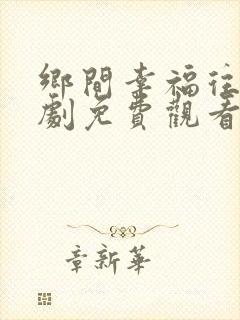 鄉間幸福往
劇免費觀看
章新華